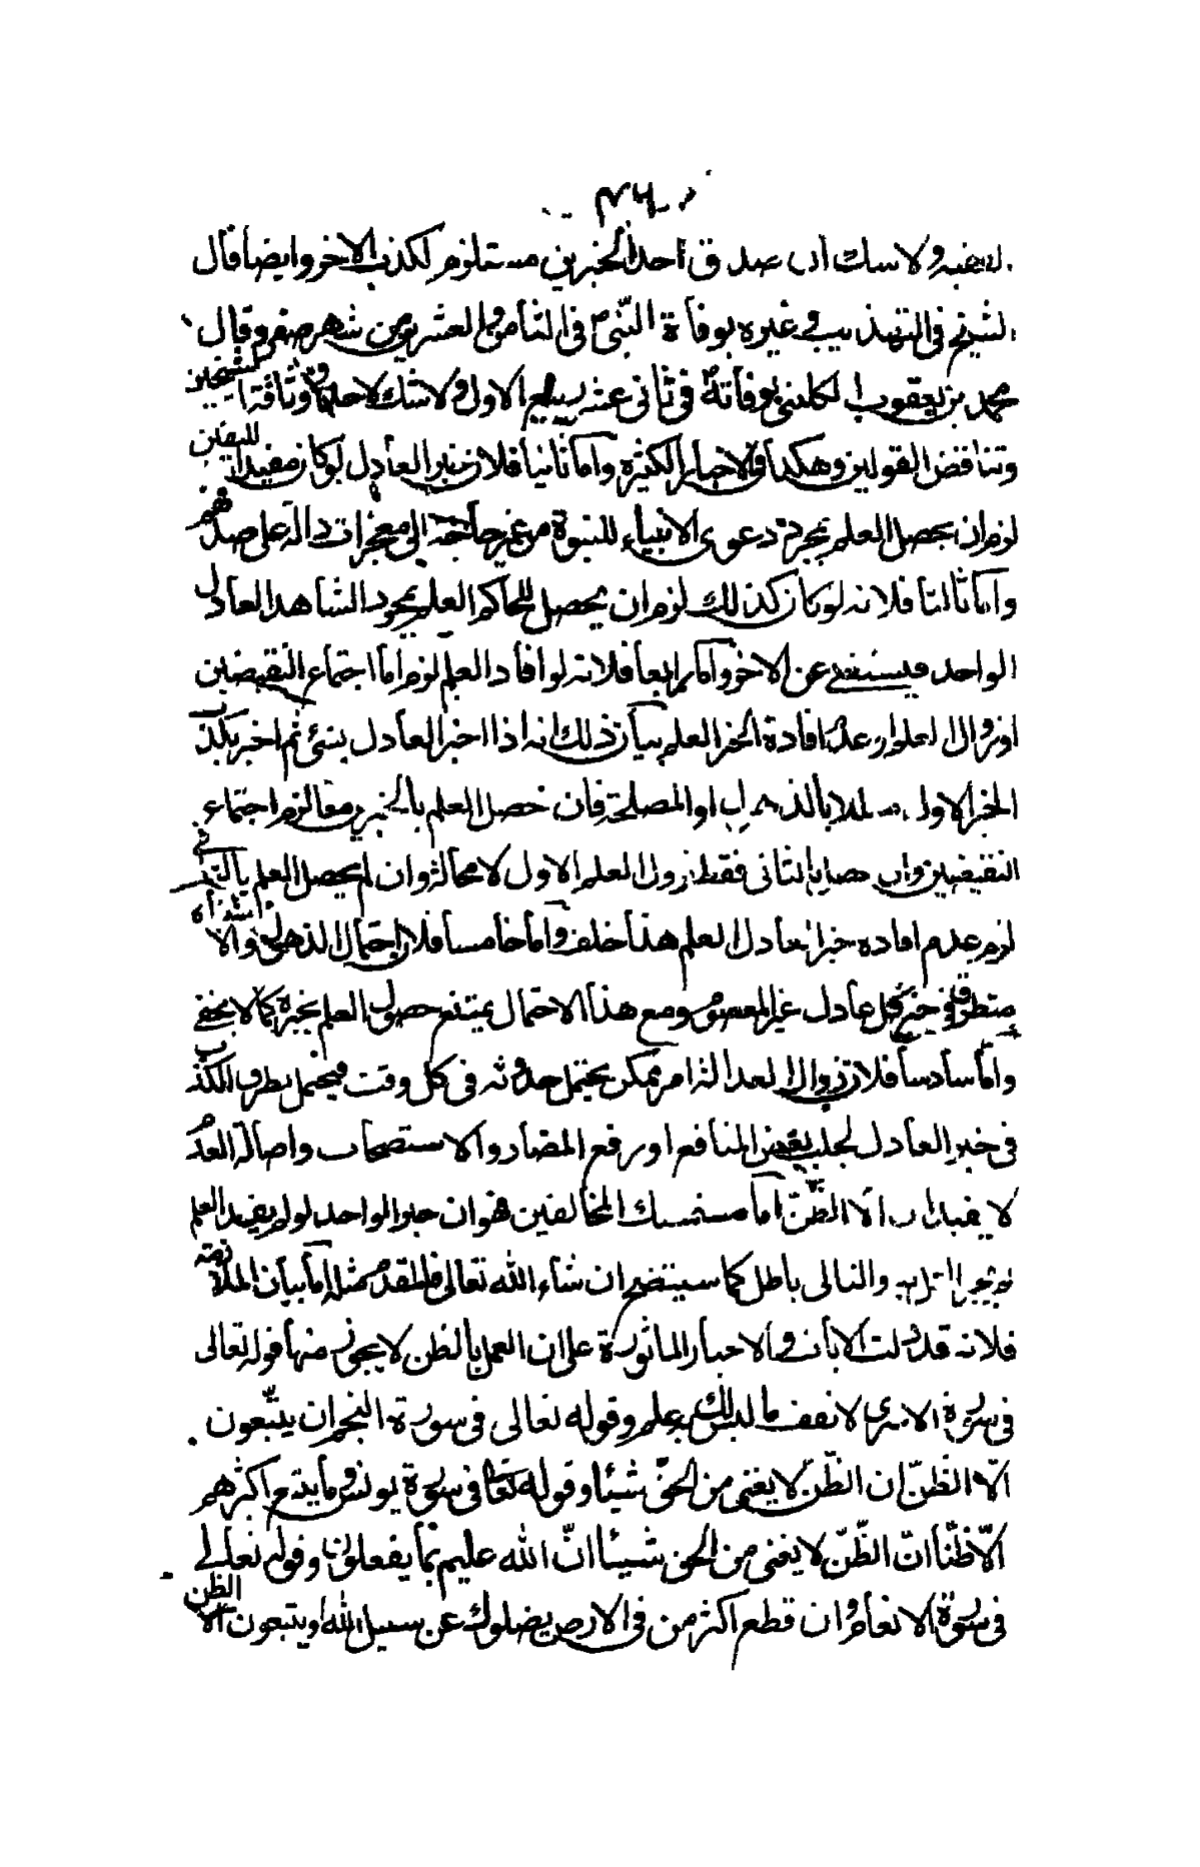 ولا شك ان صدق احد الخبرين مستلزم لكذب الاخر وايضا قال
الشيخ في التهذيب وغيره بوفاة النبي ص في الثامن والعشرين من شهر صفر وقال
محمد بن يعقوب الكليني بوفاته في ثاني عشر ربيع الاول ولا شك لاحد في وثاقة الشيخين
وتناقض القولين وهكذا في الاخبار الكثيرة واما ثانيا فلان خبر العادل لو كان مفيدا لليقين
لزم ان يحصل العلم بمجرد دعوى الانبياء للنبوة من غير حاجة الى معجزات دالة على صدقهم
واما ثالثا فلانه لو كان كذلك لزم ان يحصل للحاكم العلم بمجرد الشاهد العادل
الواحد فيستغنى عن الاخر واما رابعا فلانه لو افاد العلم لزم اما اجتماع النقيضين
او زوال العلم او عدم افادة الخبر العلم بيان ذلك انه اذا اخبر العادل بشئ ثم اخبر بكذب
الخبر الاول او المصلحة فان حصل العلم بالخبرين معا لزم اجتماع
النقيضين وان حصل بالثاني فقط زوال العلم الاول لا محالة وان لم يحصل العلم بالثاني
لزم عدم افادة خبر العادل العلم هذا خلف واما خامسا فلان احتمال الذهول والاشتباه
متطرق في خبر كل عادل غير المعصوم ومع هذا الاحتمال يمتنع حصول العلم بخبره كما لا يخفى
واما سادسا فلان زوال العدالة امر ممكن يحتمل حدوثه في كل وقت فيحتمل تطرق الكذب
في خبر العادل لجلب بعض المنافع او رفع المضار والاستصحاب واصالة العدم
لا يفيدان الا الظن اما مستمسك المخالفين فهو ان خبر الواحد لو لم يفيد العلم
والتالي باطل كما سيتضح ان شاء الله تعالى فالمقدم مثله اما بيان الملازمة
فلانه قد دلت الايات والاخبار الماثورة على ان العمل بالظن لا يجوز منها قوله تعالى
في سورة الاسرى لا تقف ما ليس لك به علم وقوله تعالى في سورة النجم ان يتبعون
الا الظن ان الظن لا يغني من الحق شيئا وقوله تعالى في سورة يونس وما يتبع اكثرهم
الا ظنا ان الظن لا يغني من الحق شيئا ان الله عليم بما يفعلون وقوله تعالى
في سورة الانعام وان تطع اكثر من في الارض يضلوك عن سبيل الله ان يتبعون الا الظن